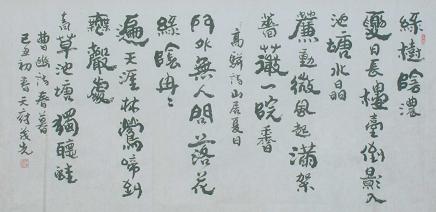 綠樹陰濃
夏日長樓臺倒影入
池塘水晶
簾動微風起滿架
薔薇一院香
高駢詩山居夏日
門外無人問落花
綠陰冉〻
遍天涯林鶯啼到
無聲處
青草池塘獨聽蛙
曹豳詩春暮
己丑初春天府茂光